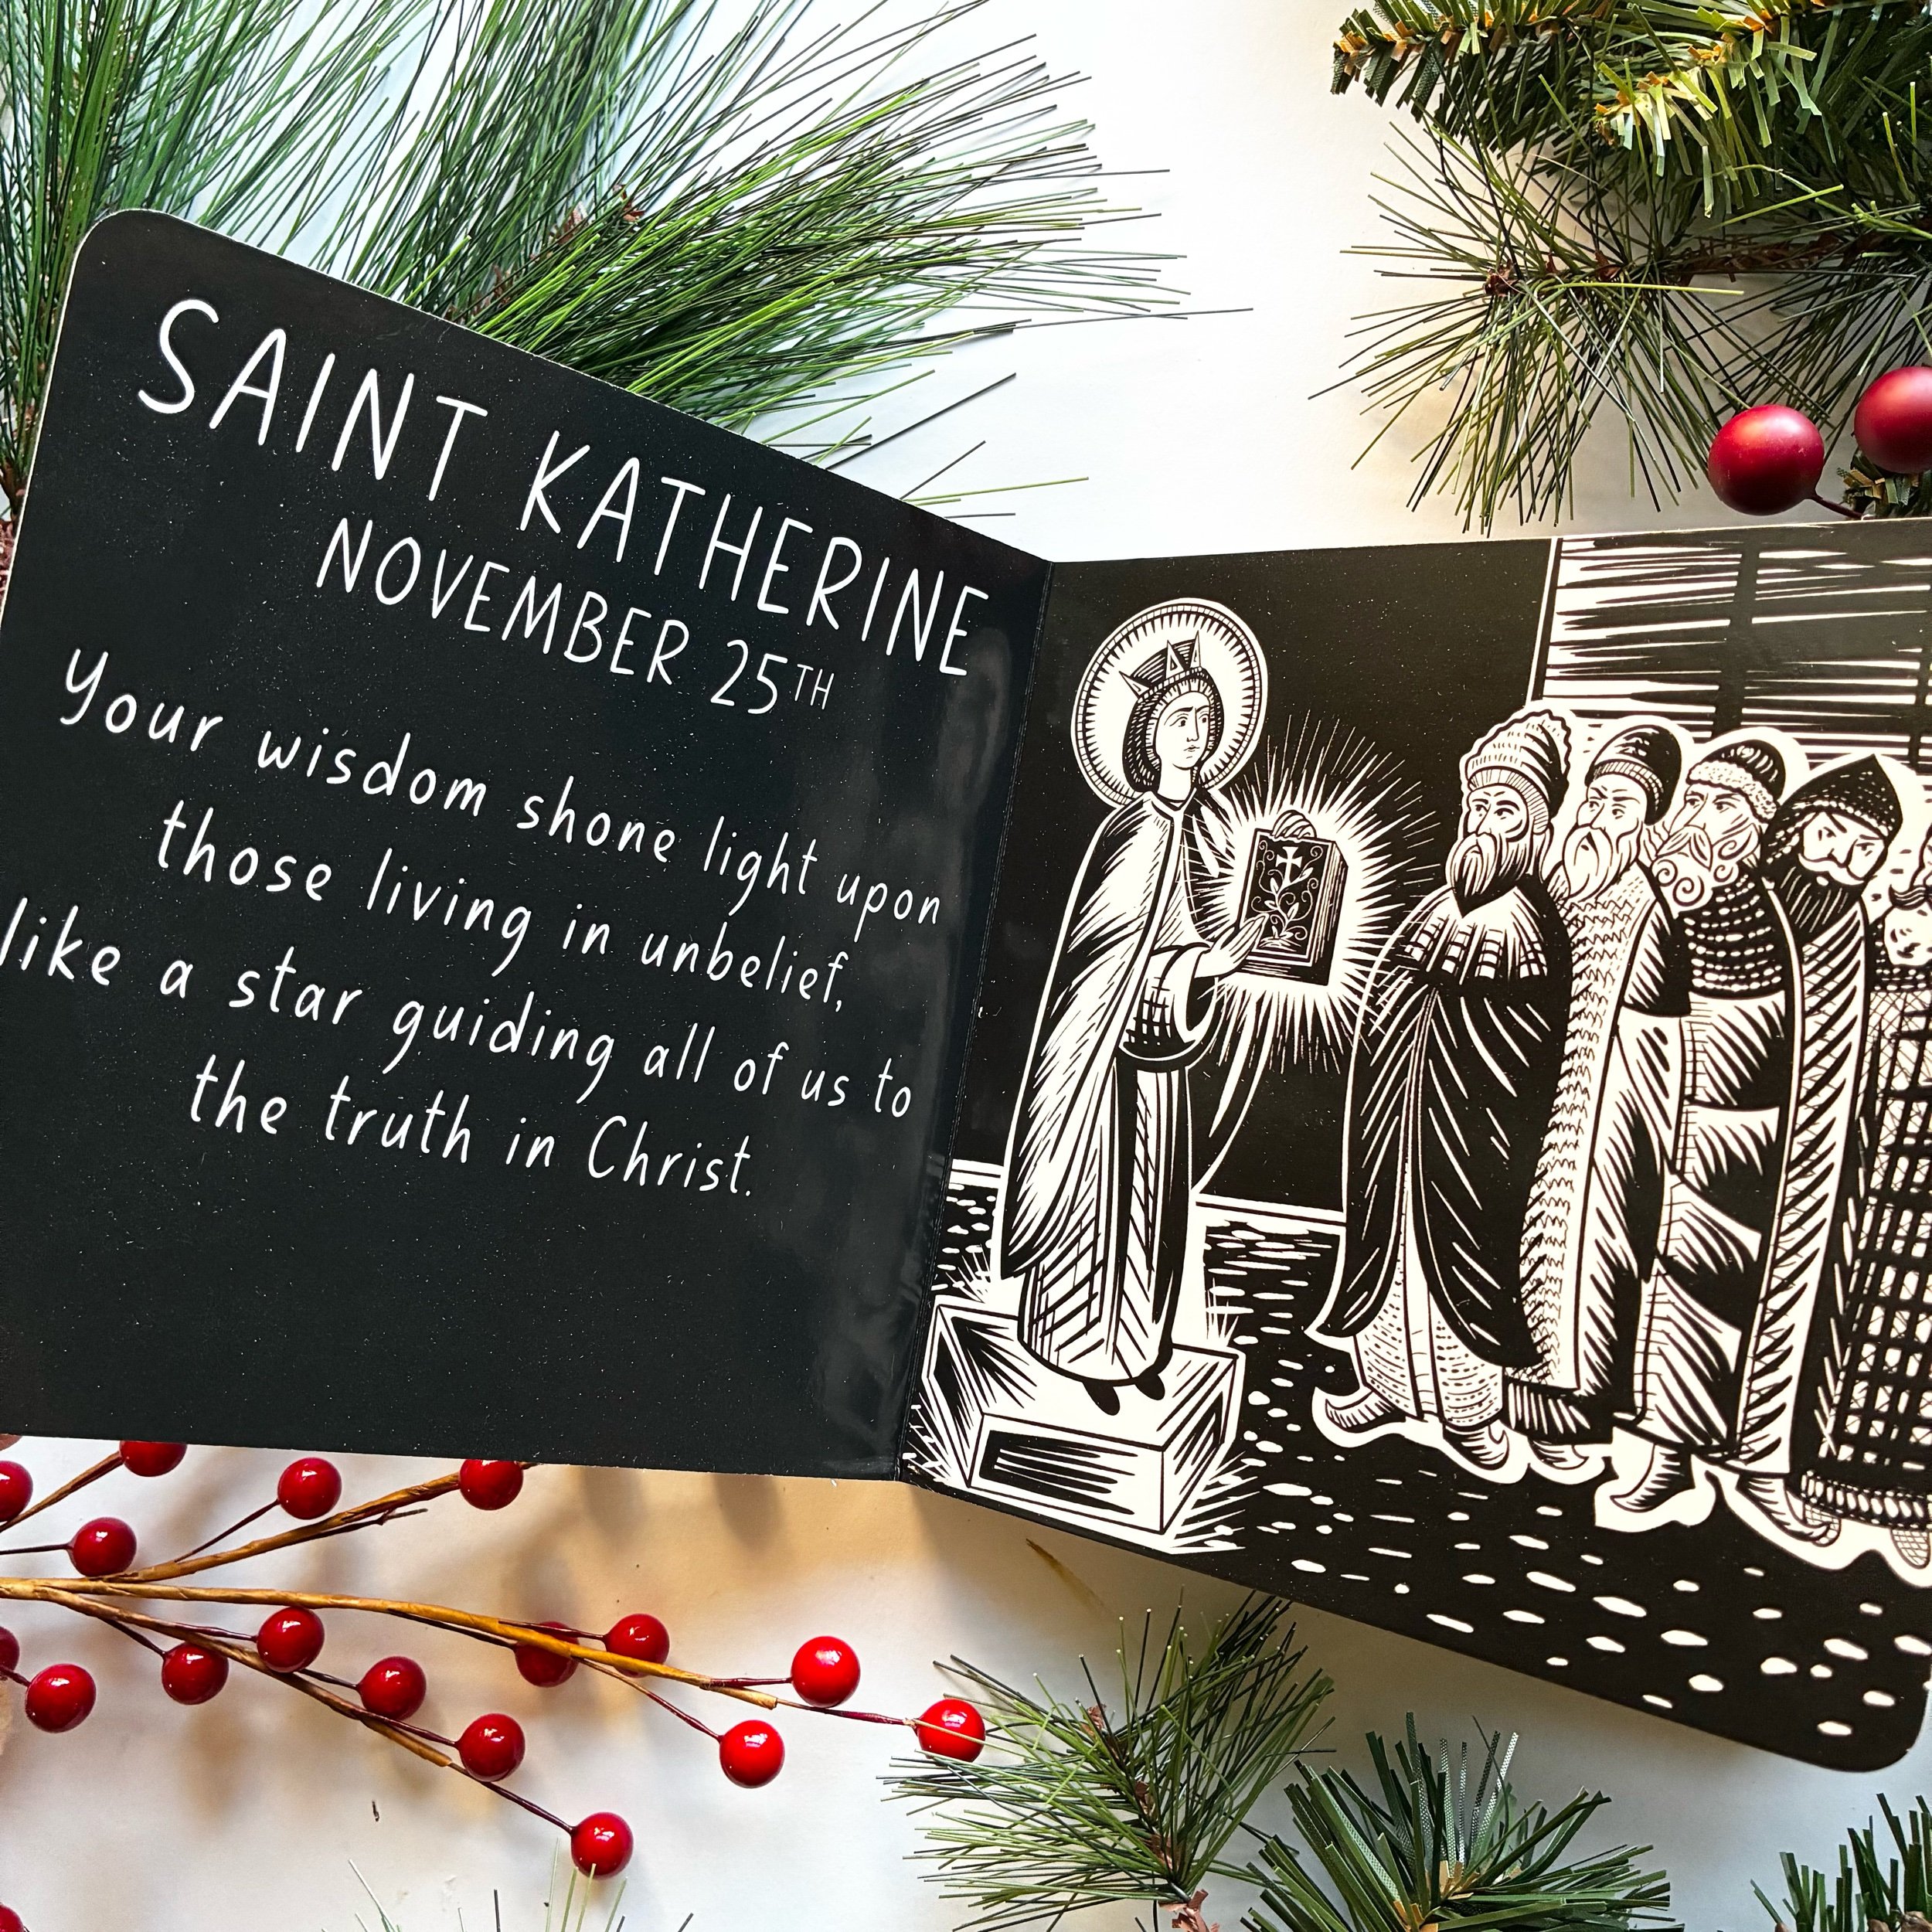 SAINT KATHERINE
NOVEMBER 25TH
Your wisdom shone light upon
those living in unbelief,
like a star guiding all of us to
the truth in Christ.